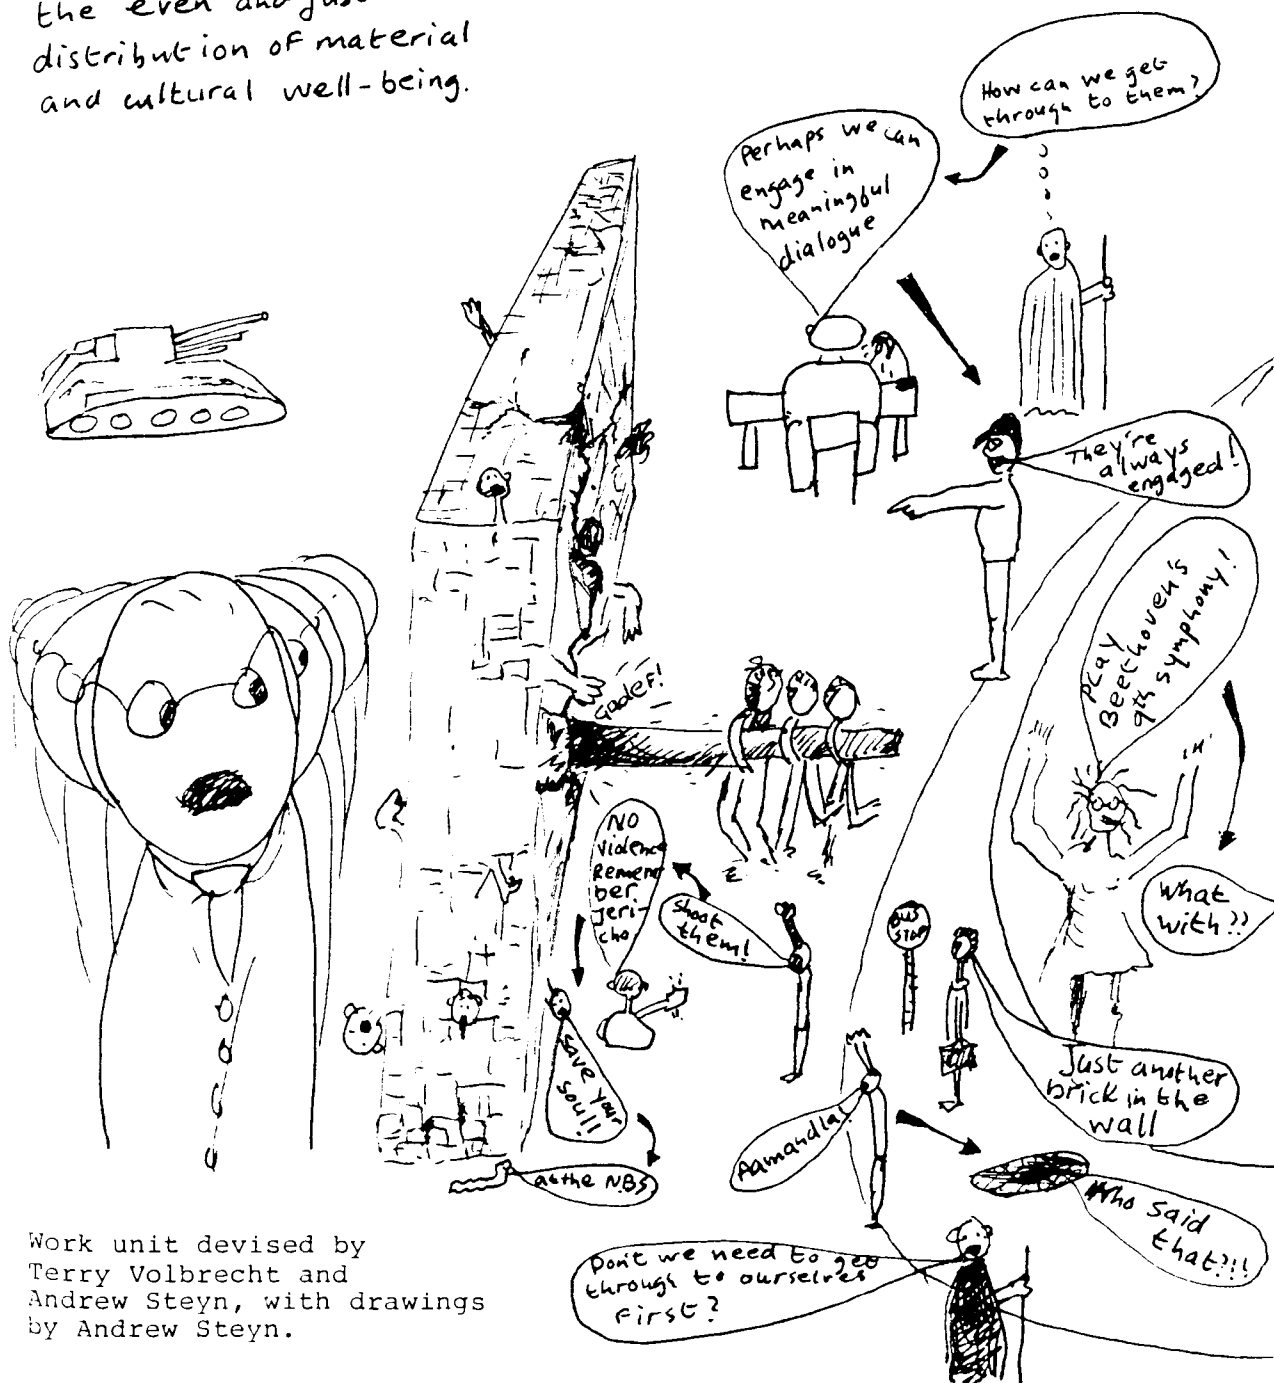 the even and just
distribution of material
and cultural well-being.
How can we get
through to them?
Perhaps we can
engage in
meaningful
dialogue
They're
always
engaged!
PLAY
Beethoven's
9th symphony!
What
with??
Gadef!
NO
violence
Remem
ber
Jeri-
cho
Shoot
them!
BUS
STOP
Save your
soul!!
at the N.B.S
Just another
brick in the
wall
Aamandla!
Who said
that?!!
Don't we need to get
through to ourselves
first?
Work unit devised by
Terry Volbrecht and
Andrew Steyn, with drawings
by Andrew Steyn.